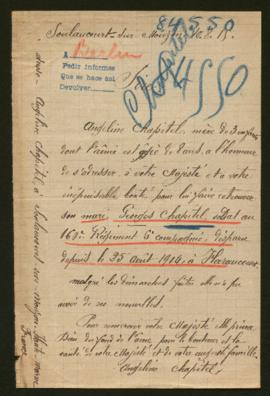 Soulaucourt-sur-Mouzon
84550
A
Berlin
Pedir informes
Que se hace así
Devolver
Chapitel
84550
Angéline Chapitel, mère de 3 enfants
dont l'aîné est âgé de 8 ans a l'honneur
de s'adresser à votre Majesté et a votre
inépuisable bonté pour lui faire retrouver
son mari Georges Chapitel soldat au
163e Régiment 6e compagnie, disparu
depuis le 25 août 1914 à
malgré les démarches faites elle n'a pu
avoir de ses nouvelles.
Pour remercier votre Majesté
Dieu du fond de l'âme pour le bonheur et la
santé de votre Majesté et de votre auguste famille.
Angéline Chapitel
Angéline Chapitel, à Soulaucourt sur Mouzon, Haute-Marne
France